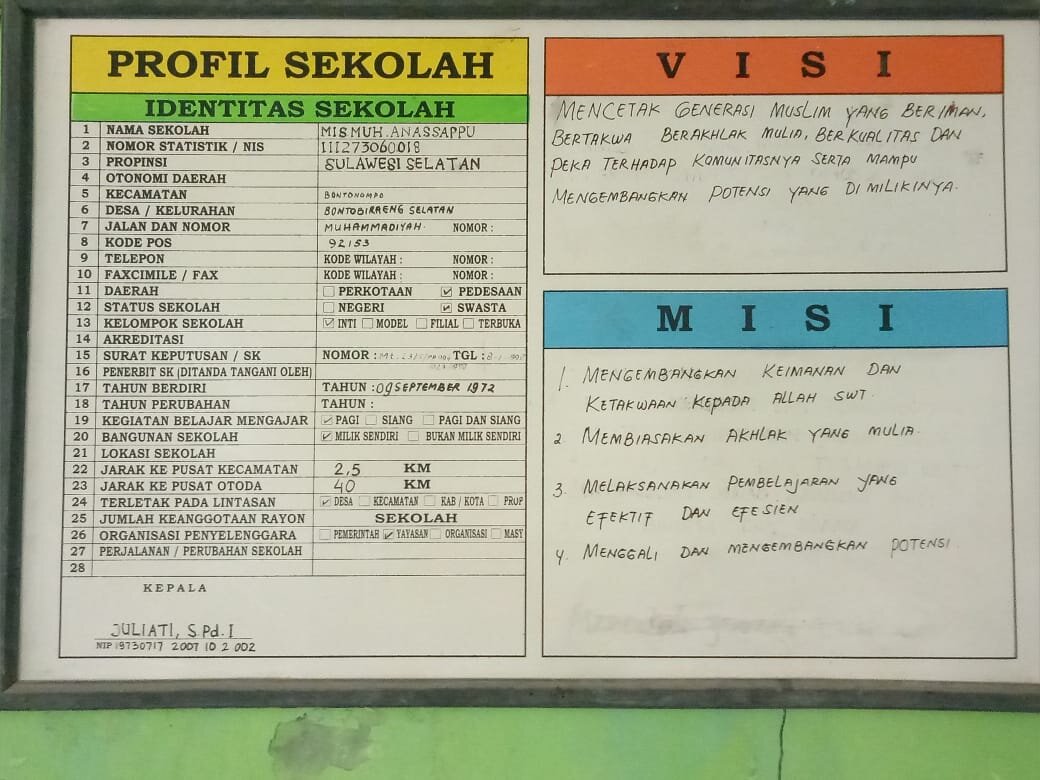 PROFIL SEKOLAH
IDENTITAS SEKOLAH
1 NAMA SEKOLAH MIS MUH. ANASSAPPU
2 NOMOR STATISTIK / NIS 111273060018
3 PROPINSI SULAWESI SELATAN
4 OTONOMI DAERAH
5 KECAMATAN BONTONOMPO
6 DESA / KELURAHAN BONTOBIRAENG SELATAN
7 JALAN DAN NOMOR MUHAMMADIYAH. NOMOR :
8 KODE POS 92153
9 TELEPON KODE WILAYAH : NOMOR :
10 FAXCIMILE / FAX KODE WILAYAH : NOMOR :
11 DAERAH PERKOTAAN PEDESAAN
12 STATUS SEKOLAH NEGERI SWASTA
13 KELOMPOK SEKOLAH INTI MODEL FILIAL TERBUKA
14 AKREDITASI
15 SURAT KEPUTUSAN / SK NOMOR : TGL :
16 PENERBIT SK (DITANDA TANGANI OLEH)
17 TAHUN BERDIRI TAHUN : 09 SEPTEMBER 1972
18 TAHUN PERUBAHAN TAHUN :
19 KEGIATAN BELAJAR MENGAJAR PAGI SIANG PAGI DAN SIANG
20 BANGUNAN SEKOLAH MILIK SENDIRI BUKAN MILIK SENDIRI
21 LOKASI SEKOLAH
22 JARAK KE PUSAT KECAMATAN 2,5 KM
23 JARAK KE PUSAT OTODA 40 KM
24 TERLETAK PADA LINTASAN DESA KECAMATAN KAB / KOTA PROP
25 JUMLAH KEANGGOTAAN RAYON SEKOLAH
26 ORGANISASI PENYELENGGARA PEMERINTAH YAYASAN ORGANISASI MASY
27 PERJALANAN / PERUBAHAN SEKOLAH
28
KEPALA
JULIATI, S.Pd.I
NIP 19730717 2007 10 2 002
VISI
MENCETAK GENERASI MUSLIM YANG BERIMAN,
BERTAKWA BERAKHLAK MULIA, BERKUALITAS DAN
PEKA TERHADAP KOMUNITASNYA SERTA MAMPU
MENGEMBANGKAN POTENSI YANG DI MILIKINYA.
MISI
1. MENGEMBANGKAN KEIMANAN DAN
KETAKWAAN KEPADA ALLAH SWT.
2. MEMBIASAKAN AKHLAK YANG MULIA.
3. MELAKSANAKAN PEMBELAJARAN YANG
EFEKTIF DAN EFESIEN
4. MENGGALI DAN MENGEMBANGKAN POTENSI.